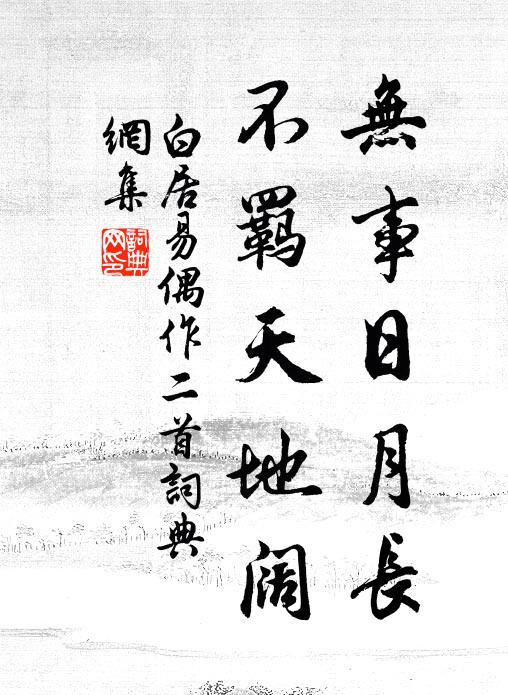 無事日月長
不羈天地闊
白居易偶作二首詞典
網集
詞典
网印